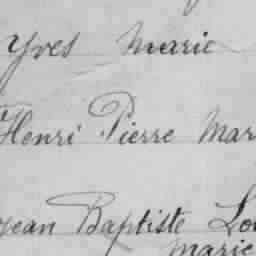 Yves Marie
Henri Pierre Mar
Jean Baptiste Lou
marie